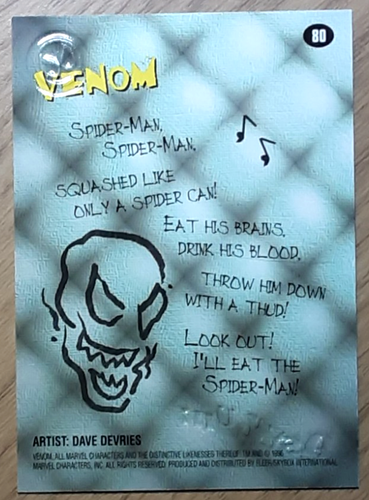 80
VENOM
SPIDER-MAN,
SPIDER-MAN,
SQUASHED LIKE
ONLY A SPIDER CAN!
EAT HIS BRAINS,
DRINK HIS BLOOD,
THROW HIM DOWN
WITH A THUD!
LOOK OUT!
I'LL EAT THE
SPIDER-MAN!
ARTIST: DAVE DEVRIES
VENOM, ALL MARVEL CHARACTERS AND THE DISTINCTIVE LIKENESSES THEREOF: TM AND © 1996
MARVEL CHARACTERS, INC. ALL RIGHTS RESERVED. PRODUCED AND DISTRIBUTED BY FLEER/SKYBOX INTERNATIONAL